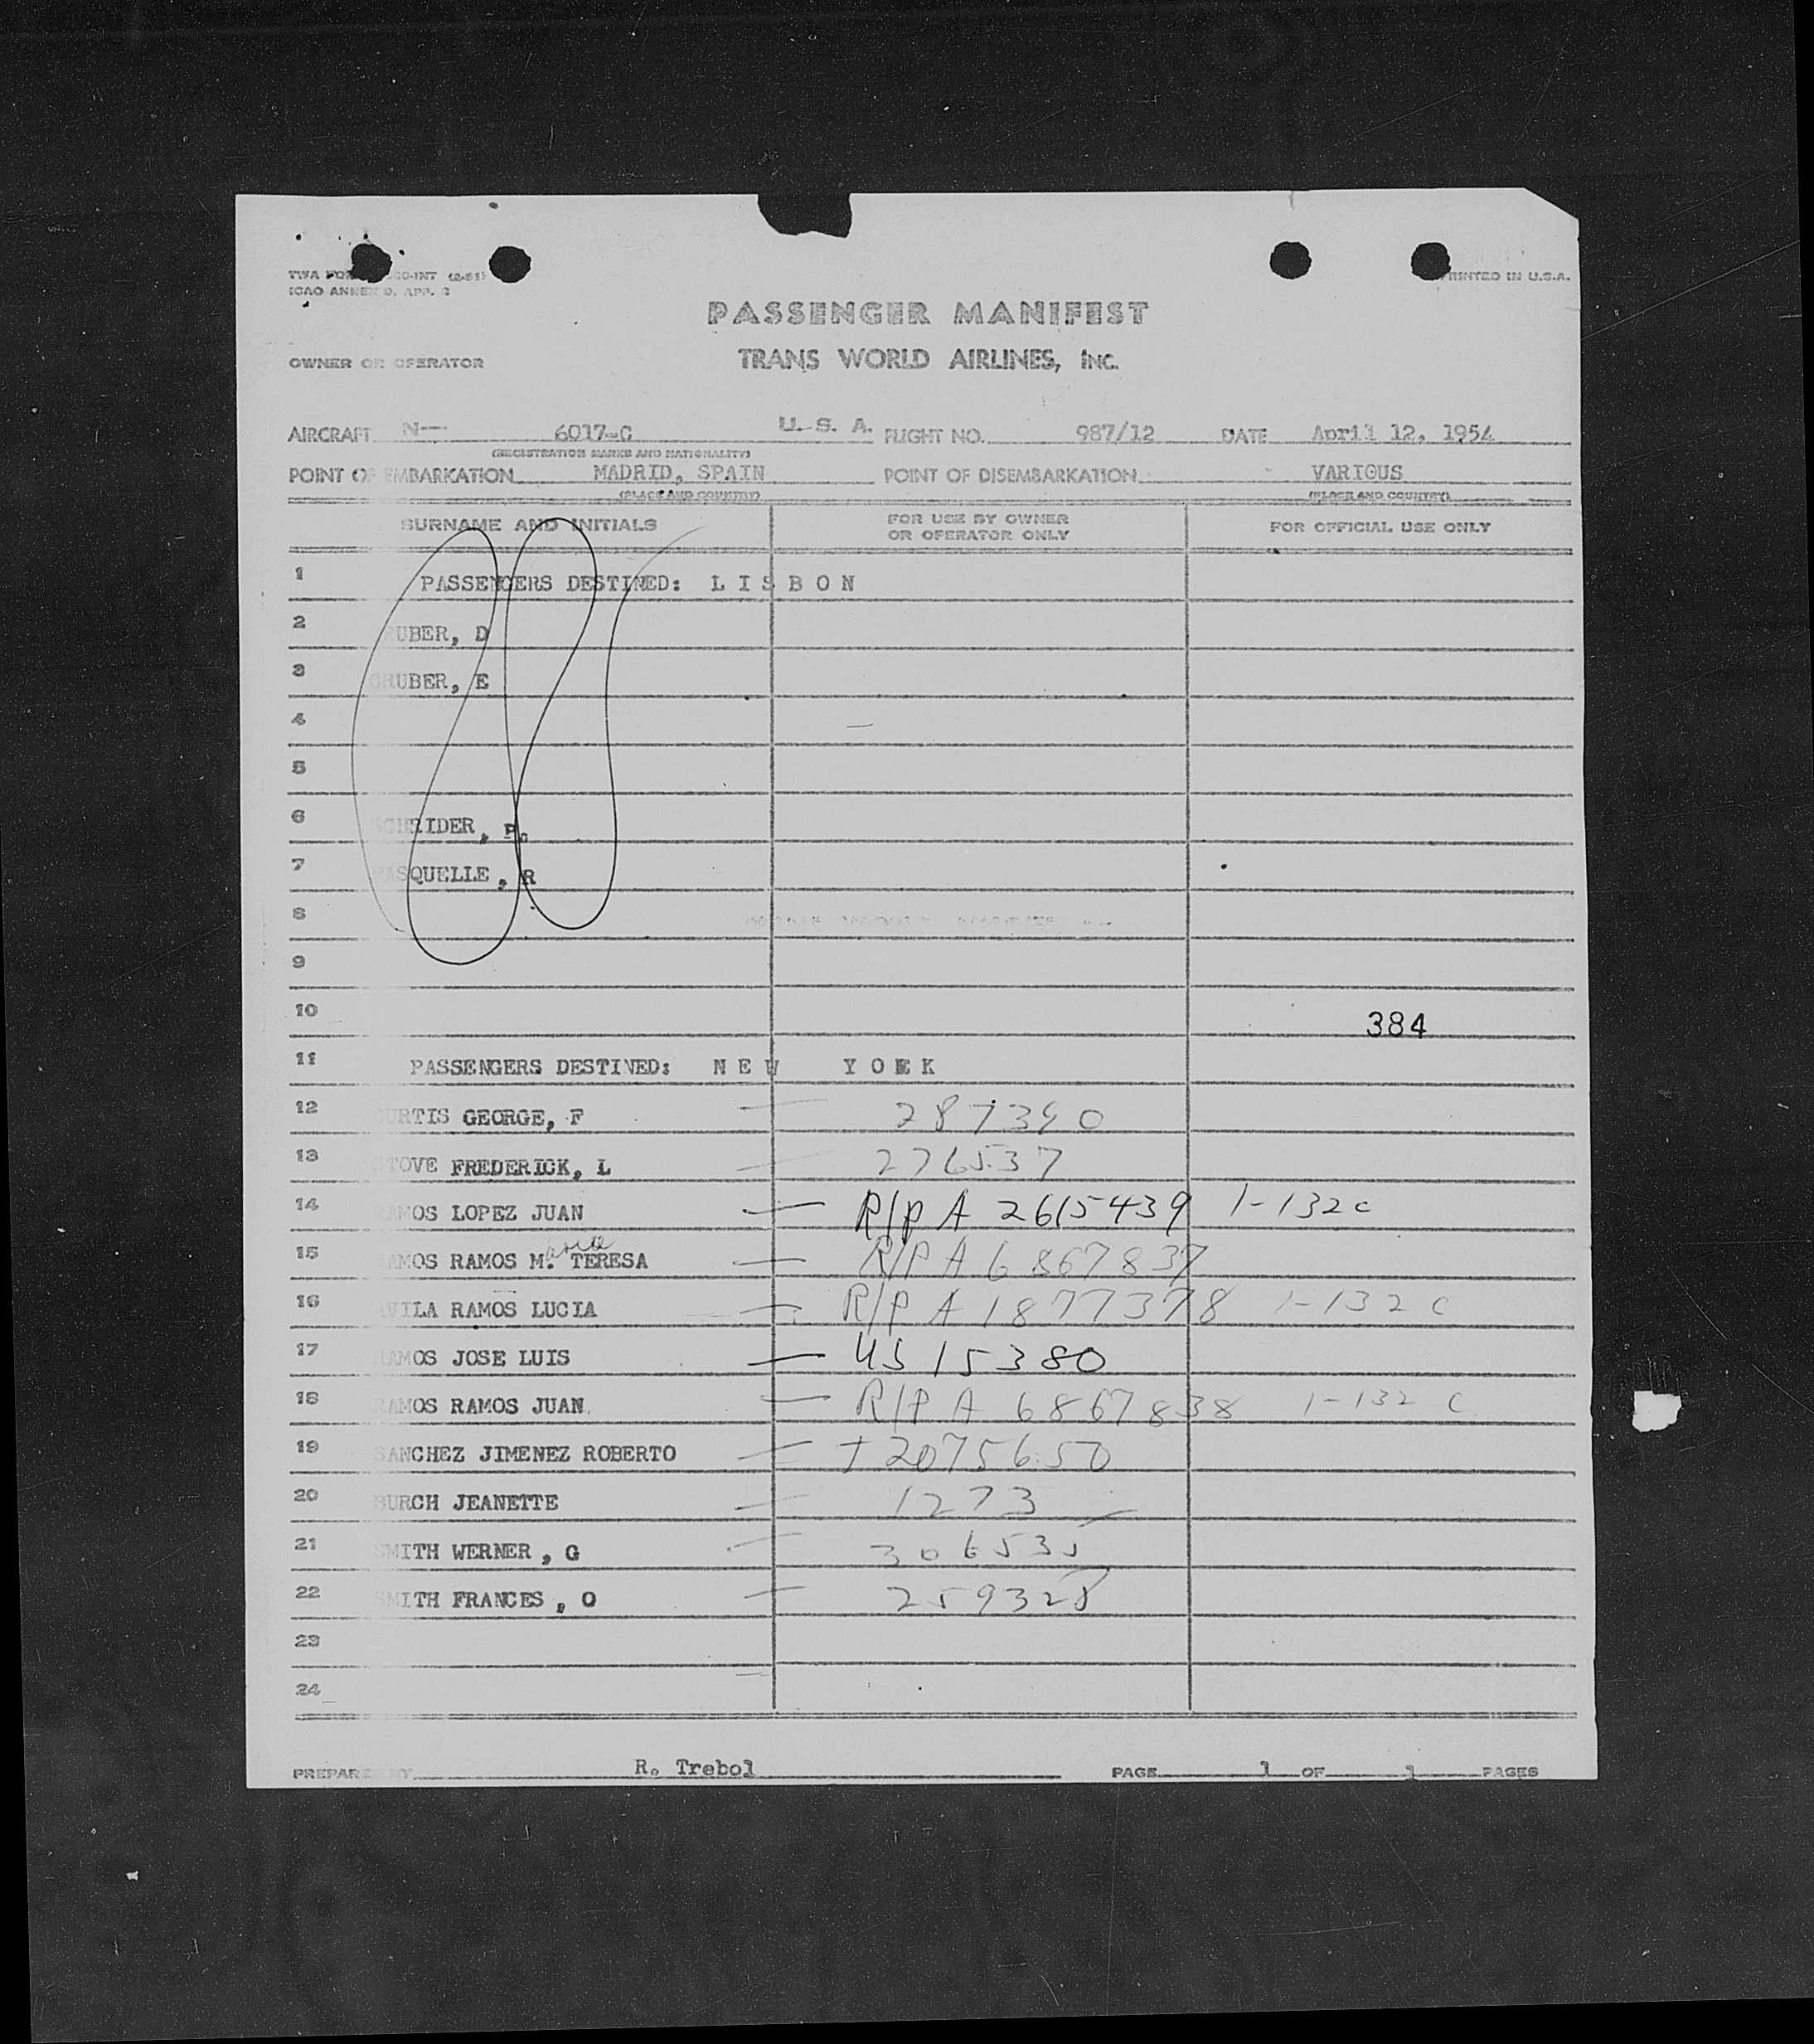 TWA FORM
(2-51)
ICAO ANNEX 9, APP. 3
PRINTED IN U.S.A.
PASSENGER MANIFEST
OWNER OR OPERATOR
TRANS WORLD AIRLINES, INC.
AIRCRAFT N— 6017-C U. S. A. FLIGHT NO. 987/12 DATE April 12, 1954
(REGISTRATION MARKS AND NATIONALITY)
POINT OF EMBARKATION MADRID, SPAIN POINT OF DISEMBARKATION VARIOUS
(PLACE AND COUNTRY) (PLACE AND COUNTRY)
SURNAME AND INITIALS FOR USE BY OWNER OR OPERATOR ONLY FOR OFFICIAL USE ONLY
1 PASSENGERS DESTINED: L I S B O N
2 UBER, D
3 GRUBER, E
4
5
6 P.
7 QUELLE, R
8
9
10 384
11 PASSENGERS DESTINED: N E W Y O R K
12 CURTIS GEORGE, F — 287390
13 TOVE FREDERICK, L — 276537
14 RAMOS LOPEZ JUAN — R/P A 2615439 1-132 c
15 RAMOS RAMOS M. aria TERESA — R/P A 6867837
16 AVILA RAMOS LUCIA — R/P A 1877378 1-132 C
17 RAMOS JOSE LUIS — US 15380
18 RAMOS RAMOS JUAN. — R/P A 6867838 1-132 C
19 SANCHEZ JIMENEZ ROBERTO — T 2075650
20 BURCH JEANETTE — 1273
21 SMITH WERNER, G — 306535
22 SMITH FRANCES, O — 259328
23
24
PREPARED BY R. Trebol PAGE 1 OF 1 PAGES